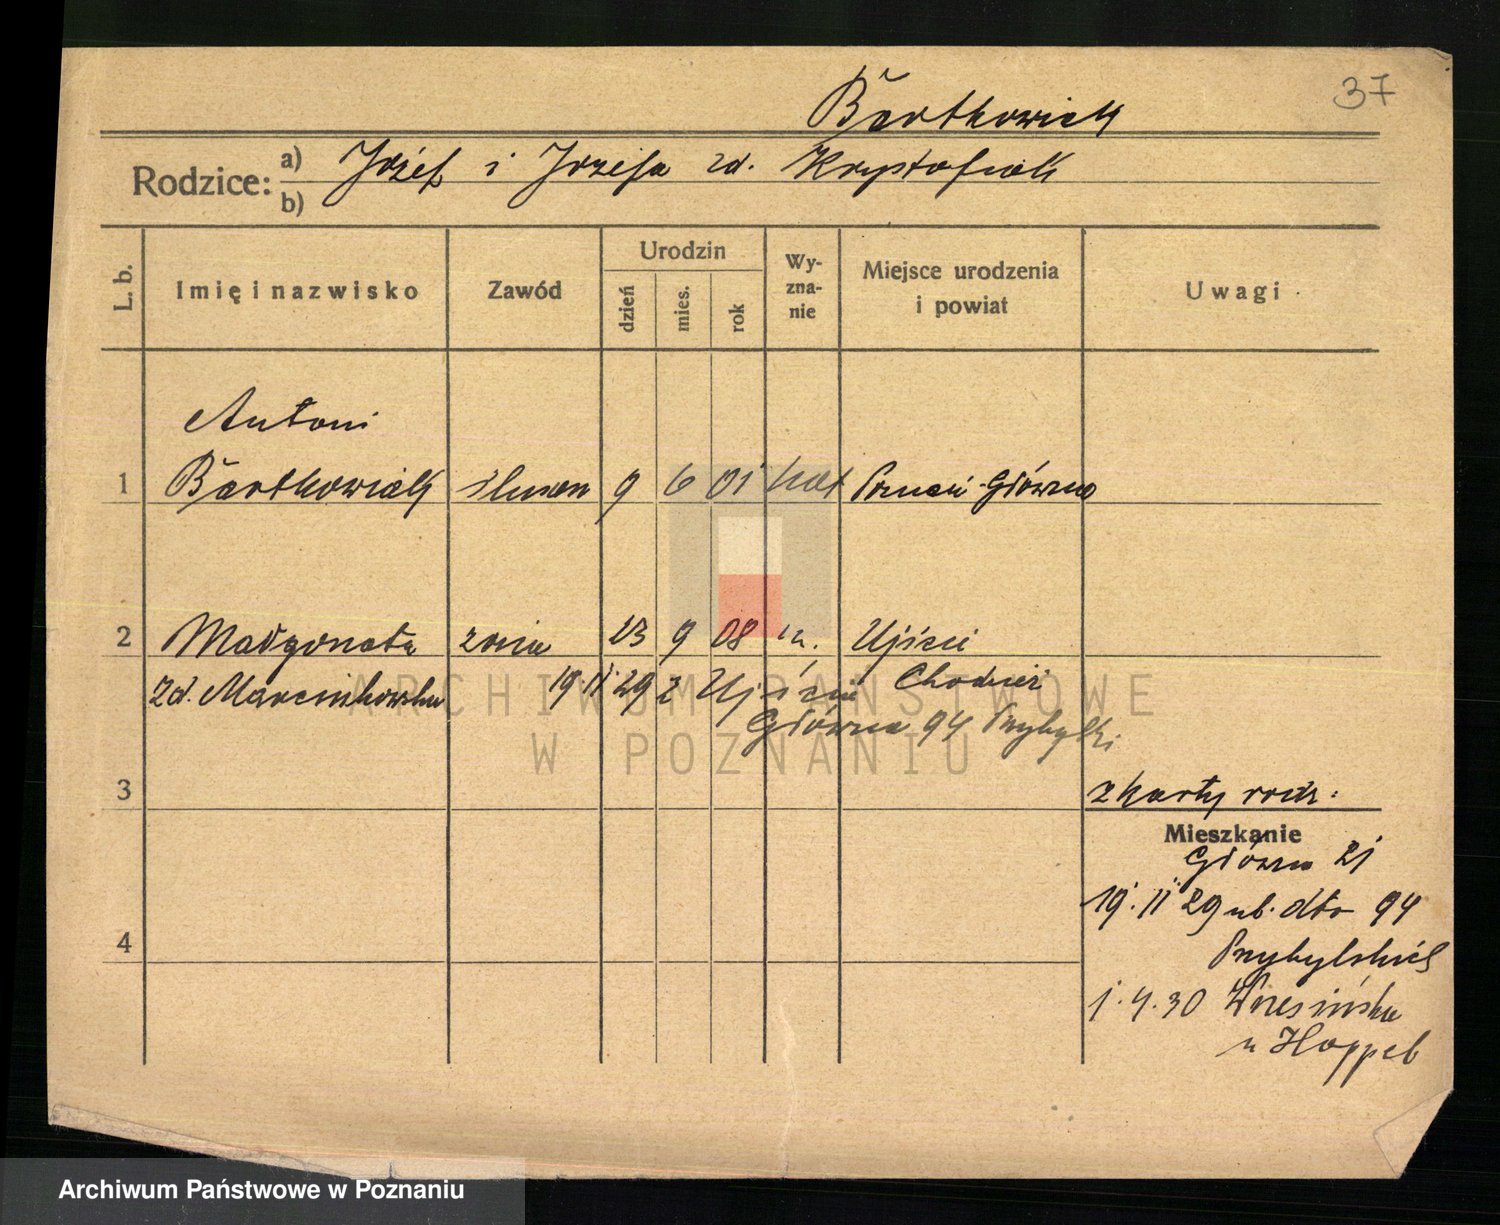 37
Bartkowiak
Rodzice: a) Józef i Józefa zd. Krysztofiak
b)
L. b. Imię i nazwisko Zawód Urodzin dzień mies. rok Wyznanie Miejsce urodzenia i powiat Uwagi
Antoni
1 Bartkowiak ślusarz 9 6 01 kat Poznań-Główna
2 Małgorzata żona 23 9 08 " Ujście
zd. Marcinkowska 19 11 29 z Ujście Chodzież
Główna 94 Przybylski
3 z karty rodz.
Mieszkanie
Główna 21
19. 11 29 ub. dto 94
Przybylski
4
1. 4. 30 Wrzesińska
u Hoppel
ARCHIWUM PAŃSTWOWE
W POZNANIU
Archiwum Państwowe w Poznaniu